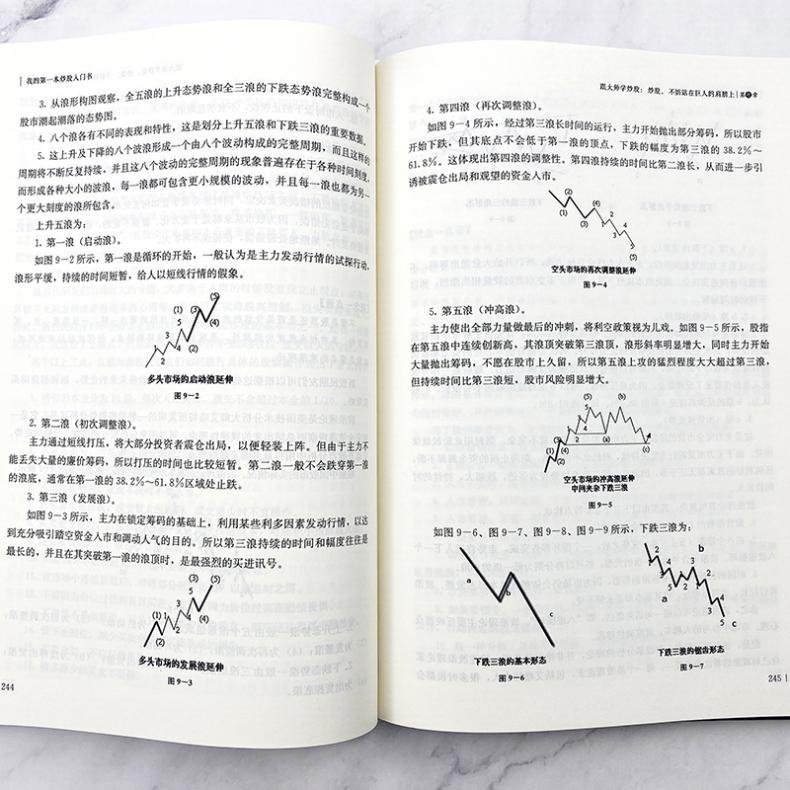 我的第一本炒股入门书
3. 从浪形构图观察，全五浪的上升态势浪和全三浪的下跌态势浪完整构成一个
股市潮起潮落的态势图。
4. 八个浪各有不同的表现和特性，这是划分上升五浪和下跌三浪的重要数据。
5. 这上升及下降的八个波浪形成一个由八个波动构成的完整周期，而且这样的
周期将不断反复持续，并且这八个波动的完整周期的现象普遍存在于各种时间刻度，
而形成各种大小的波浪，每一浪都可包含更小规模的波动，并且每一浪也都为另一
个更大刻度的浪所包含。
上升五浪为：
1. 第一浪（启动浪）。
如图 9－2 所示，第一浪是循环的开始，一般认为是主力发动行情的试探行动，
浪形平缓，持续的时间短暂，给人以短线行情的假象。
(5)
(3)
5
3
(4)
1
4
2
多头市场的启动浪延伸
图 9－2
2. 第二浪（初次调整浪）。
主力通过短线打压，将大部分投资者震仓出局，以便轻装上阵，但由于主力不
能丢失大量的廉价筹码，所以打压的时间也比较短暂。第二浪一般不会跌穿第一浪
的浪底，通常在第一浪的 38.2%～61.8%区域处止跌。
3. 第三浪（发展浪）。
如图 9－3 所示，主力在锁定筹码的基础上，利用某些利多因素发动行情，以达
到充分吸引踏空资金人市和调动人气的目的。所以第三浪持续的时间和幅度往往是
最长的，并且在其突破第一浪的浪顶时，是最强烈的买进讯号。
(3)
(5)
5
3
(1)
1
4
(4)
2
(2)
多头市场的发展浪延伸
图 9－3
244
跟大师学炒股：炒股，不妨站在巨人的肩膀上
4. 第四浪（再次调整浪）。
如图 9－4 所示，经过第三浪长时间的运行，主力开始抛出部分筹码，所以股市
开始下跌，但其底点不会低于第一浪的顶点，下跌的幅度为第三浪的 38.2%～
61.8%。这体现出第四浪的调整性。第四浪持续的时间比第二浪长，从而进一步引
诱被震仓出局和观望的资金人市。
(2)
(4)
(1)
2
4
(3)
1
3
5
空头市场的再次调整浪延伸
图 9－4
5. 第五浪（冲高浪）。
主力使出全部力量做最后的冲刺，将利空政策视为儿戏。如图 9－5 所示，股指
在第五浪中连续创新高，其浪顶突破第三浪顶，浪形斜率明显增大，同时主力开始
大量抛出筹码，不愿在股市上久留，所以第五浪上攻的猛烈程度大大超过第三浪，
但持续时间比第三浪短，股市风险明显增大。
(5)
(b)
2
4
(a)
(c)
3
5
1
4
2
空头市场的冲高浪延伸
中间夹杂下跌三浪
图 9－5
如图 9－6、图 9－7、图 9－8、图 9－9 所示，下跌三浪为：
a
b
c
下跌三浪的基本形态
图 9－6
2
b
4
2
1
4
3
1
a
5
3
5
c
下跌三浪的锯齿形态
图 9－7
245